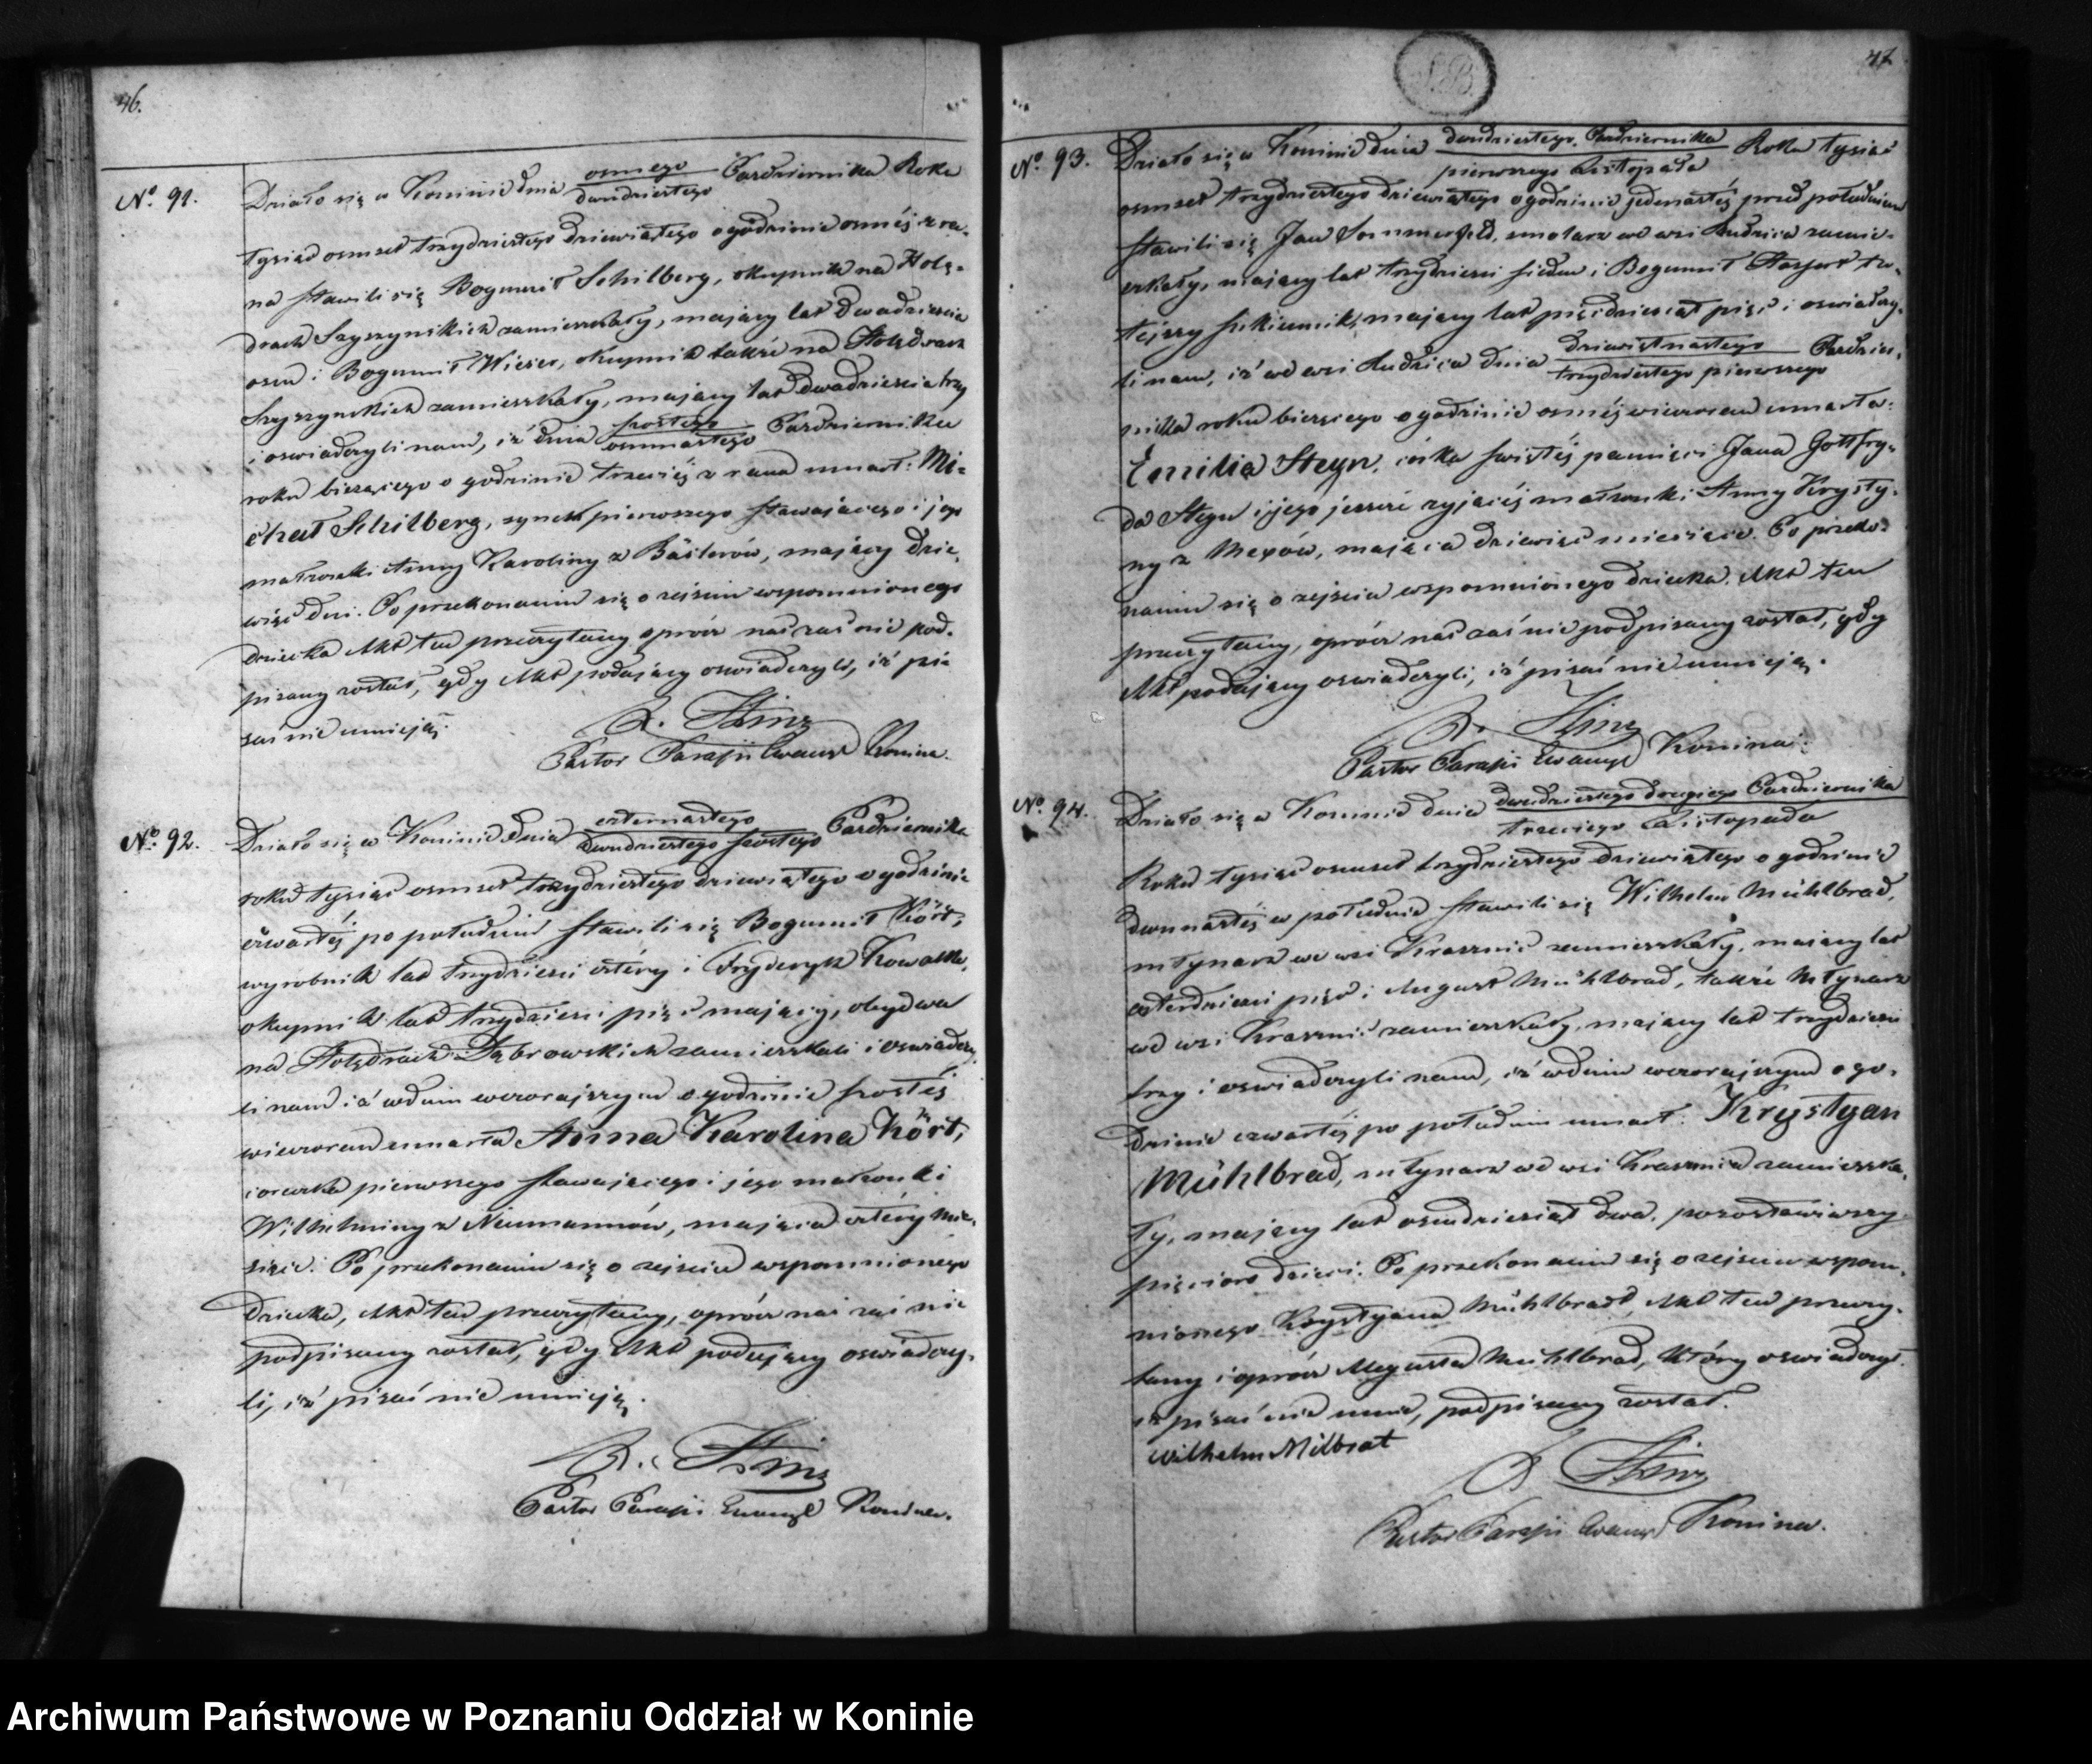 46.
No. 91.
Działo się w Koninie dnia ósmego / dwudziestego Października Roku
tysiąc osmset trzydziestego dziewiątego o godzinie osméj z ra-
na stawili się Bogumił Schilberg, okupnik na Holę-
drach Szyszynskich zamieszkały, maiący lat dwadzieścia
osm i Bogumił Wieser, okupnik także na Holędrach
Szyszynskich zamieszkały, maiący lat dwadzieścia trzy
i oswiadczyli nam, iż dnia szóstego / osmnastego Października
roku bieżącego o godzinie trzeciéj z rana umarł: Mi-
chał Schilberg, synek pierwszego stawaiącego i jego
małżonki Anny Karoliny z Bästerów, maiący dzie-
więć dni. Po przekonaniu się o zejsciu wspomnionego
dziecka Akt ten przeczytany, oprócz nas zaś nie pod-
pisany został, gdy Akt podaiący oswiadczyli, iż pi-
sać nie umieją.
Pastor Parafii Ewangl Konina.
No. 92.
Działo się w Koninie dnia czternastego / dwudziestego szóstego Października
roku tysiąc osmset trzydziestego dziewiątego o godzinie
czwartéj po południu stawili się Bogumił Kört,
wyrobnik lat trzydzieści cztéry i Fryderyk Kowalke,
okupnik lat trzydzieści pięć maiący, obydwa
na Holędrach Dąbrowskich zamieszkali i oswiadczy-
li nam iż w dniu wczorajszym o godzinie szóstéj
wieczorem umarła Anna Karolina Kört,
córeczka pierwszego stawaiącego i jego małżonki
Wilhelminy z Neumannów, maiąca cztéry mie-
siące. Po przekonaniu się o zejsciu wspomnionego
dziecka, Akt ten przeczytany, oprócz nas zaś nie
podpisany został, gdy Akt podaiący oswiadczy-
li, iż pisać nie umieją.
Pastor Parafii Ewangl Konina.
47
No. 93.
Działo się w Koninie dnia dwudziestego Października / pierwszego Listopada Roku tysiąc
osmset trzydziestego dziewiątego o godzinie jedenastéj przed południem
stawili się Jan Sommerfeld, smolarz we wsi Rudzica zamie-
szkały, maiący lat trzydzieści siedm i Bogumił tu-
tejszy sukiennik, maiący lat pięćdziesiąt pięć i oswiadczy-
li nam, iż we wsi Rudzica dnia dziewiętnastego / trzydziestego pierwszego Paździer-
nika roku bieżącego o godzinie osméj wieczorem umarła:
Emilia Steyn, córka swiętéj pamięci Jana Gottfry-
da Steyn i jego jeszcze żyjącéj małżonki Anny Krysty-
ny z Mexów, maiąca dziewięć miesięcy. Po przeko-
naniu się o zejsciu wspomnionego dziecka, Akt ten
przeczytany, oprócz nas zaś nie podpisany został, gdy
Akt podaiący oswiadczyli, iż pisać nie umieją.
Pastor Parafii Ewangl Konina.
No. 94.
Działo się w Koninie dnia dwudziestego drugiego Października / trzeciego Listopada
Roku tysiąc osmset trzydziestego dziewiątego o godzinie
dwunastéj w południe stawili się Wilhelm Mühlbrad,
młynarz we wsi Kraznic zamieszkały, maiący lat
czterdzieści pięć i August Mühlbrad, także Młynarz
we wsi Kraznic zamieszkały, maiący lat trzydzieści
trzy i oswiadczyli nam, iż w dniu wczorajszym o go-
dzinie czwartéj po południu umarł: Krystyan
Mühlbrad, młynarz we wsi Kraznic zamieszka-
ły, maiący lat osmdziesiąt dwa, pozostawiwszy
pięcioro dzieci. Po przekonaniu się o zejsciu wspom-
nionego Krystyana Mühlbrad, Akt ten przeczy-
tany i oprócz Augusta Mühlbrad, który oswiadczył
iż pisać nie umie, podpisany został.
Wilhelm Milbrat
Pastor Parafii Ewangl Konina.
Archiwum Państwowe w Poznaniu Oddział w Koninie